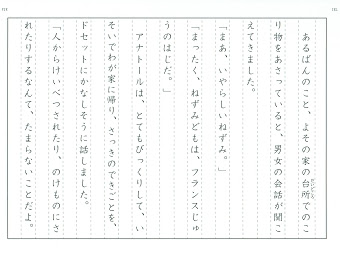 あるばんのこと、よその家の台所でのこ
り物をあさっていると、男女の会話が聞こ
えてきました。
「まあ、いやらしいねずみ。」
「まったく、ねずみどもは、フランスじゅ
うのはじだ。」
アナトールは、とてもびっくりして、い
そいでわが家に帰り、さっきのできごとを、
ドセットにかなしそうに話しました。
「人からけいべつされたり、のけものにさ
れたりするなんて、たまらないことだよ。